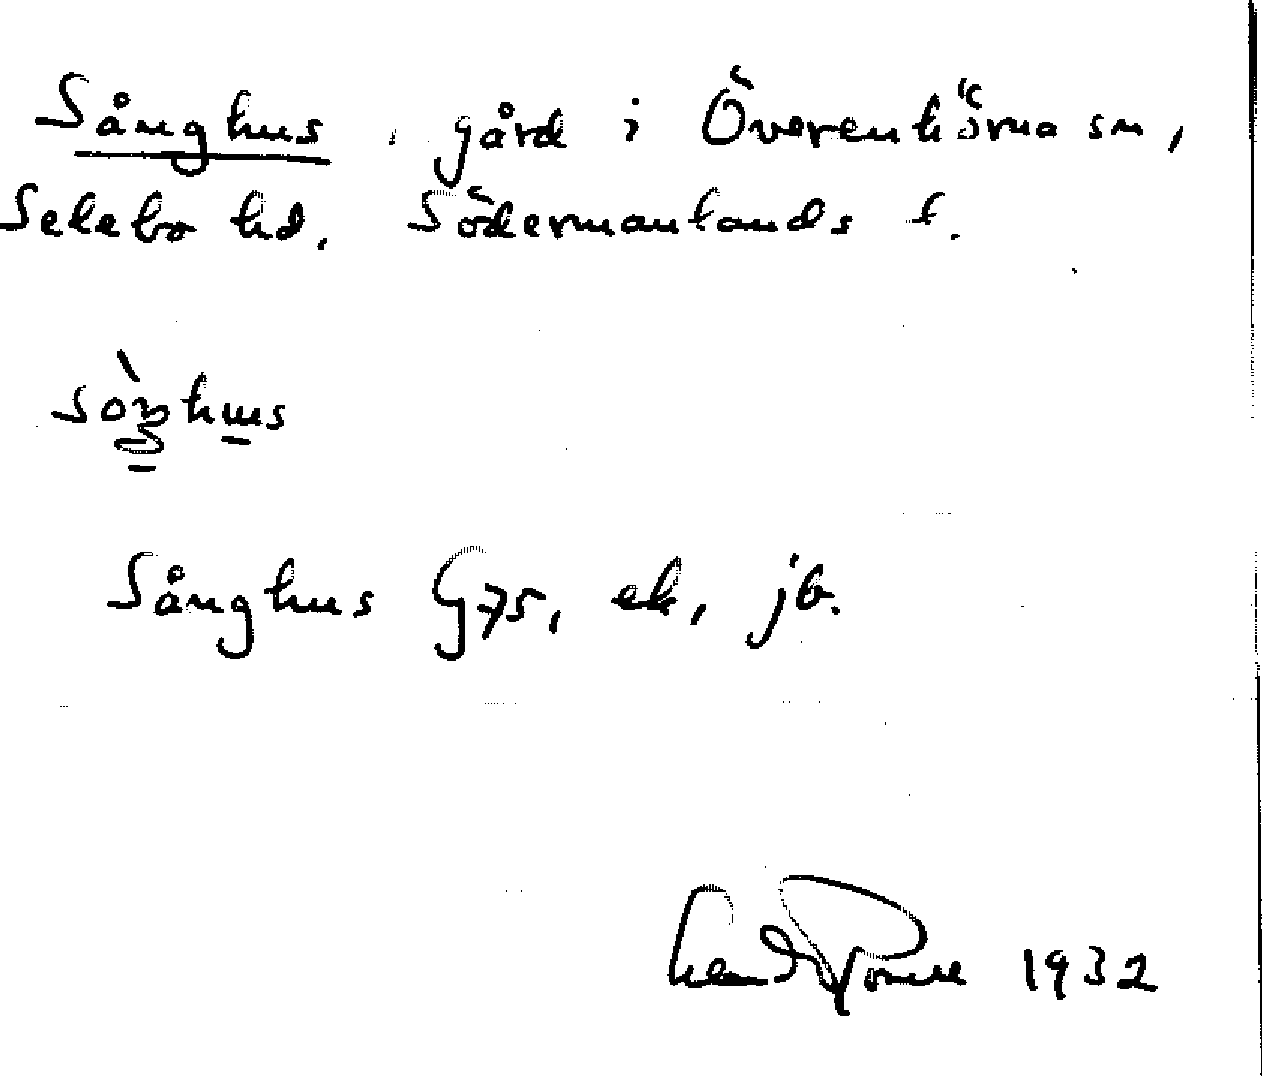 Sånghus, gård i Överenhörna sn,
Selebo hd. Södermanlands l.
Sånghus G75, ek, jb.
1932